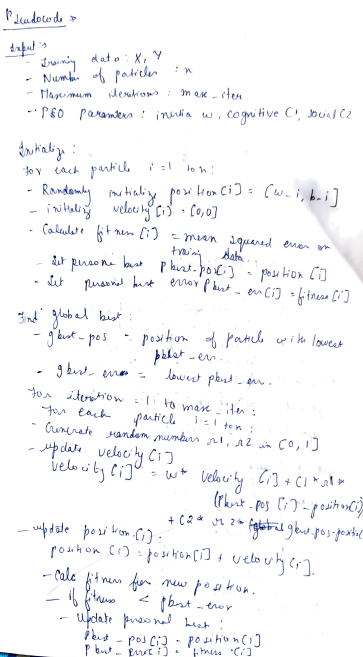 Pseudocode :-
Input :-
- Training data : X, Y
- Number of particles : n
- Maximum iterations : max_iter
- PSO Parameters : inertia w, cognitive C1, social C2
Initialize :
for each particle i = 1 to n :
- Randomly initialize position [i] = [w_i, b_i]
- initialize velocity [i] = [0,0]
- Calculate fitness [i] = mean squared error on
training data
- Set personal best pbest_pos[i] = position [i]
- Set personal best error pbest_err[i] = fitness [i]
Find global best :
- gbest_pos = position of particle with lowest
pbest_err.
- gbest_error = lowest pbest_err.
For iteration = 1 to max_iter :
For each particle i = 1 to n :
- Generate random numbers r1, r2 in [0, 1]
- update velocity [i]
velocity [i] = w * velocity [i] + C1 * r1 *
(pbest_pos [i] - position[i])
+ C2 * r2 * (gbest_pos-position
- update position [i].
position [i] = position[i] + velocity [i].
- Calc fitness for new position.
- If fitness < pbest_error
- Update personal best :
pbest_pos[i] = position [i]
pbest_error[i] = fitness [i]